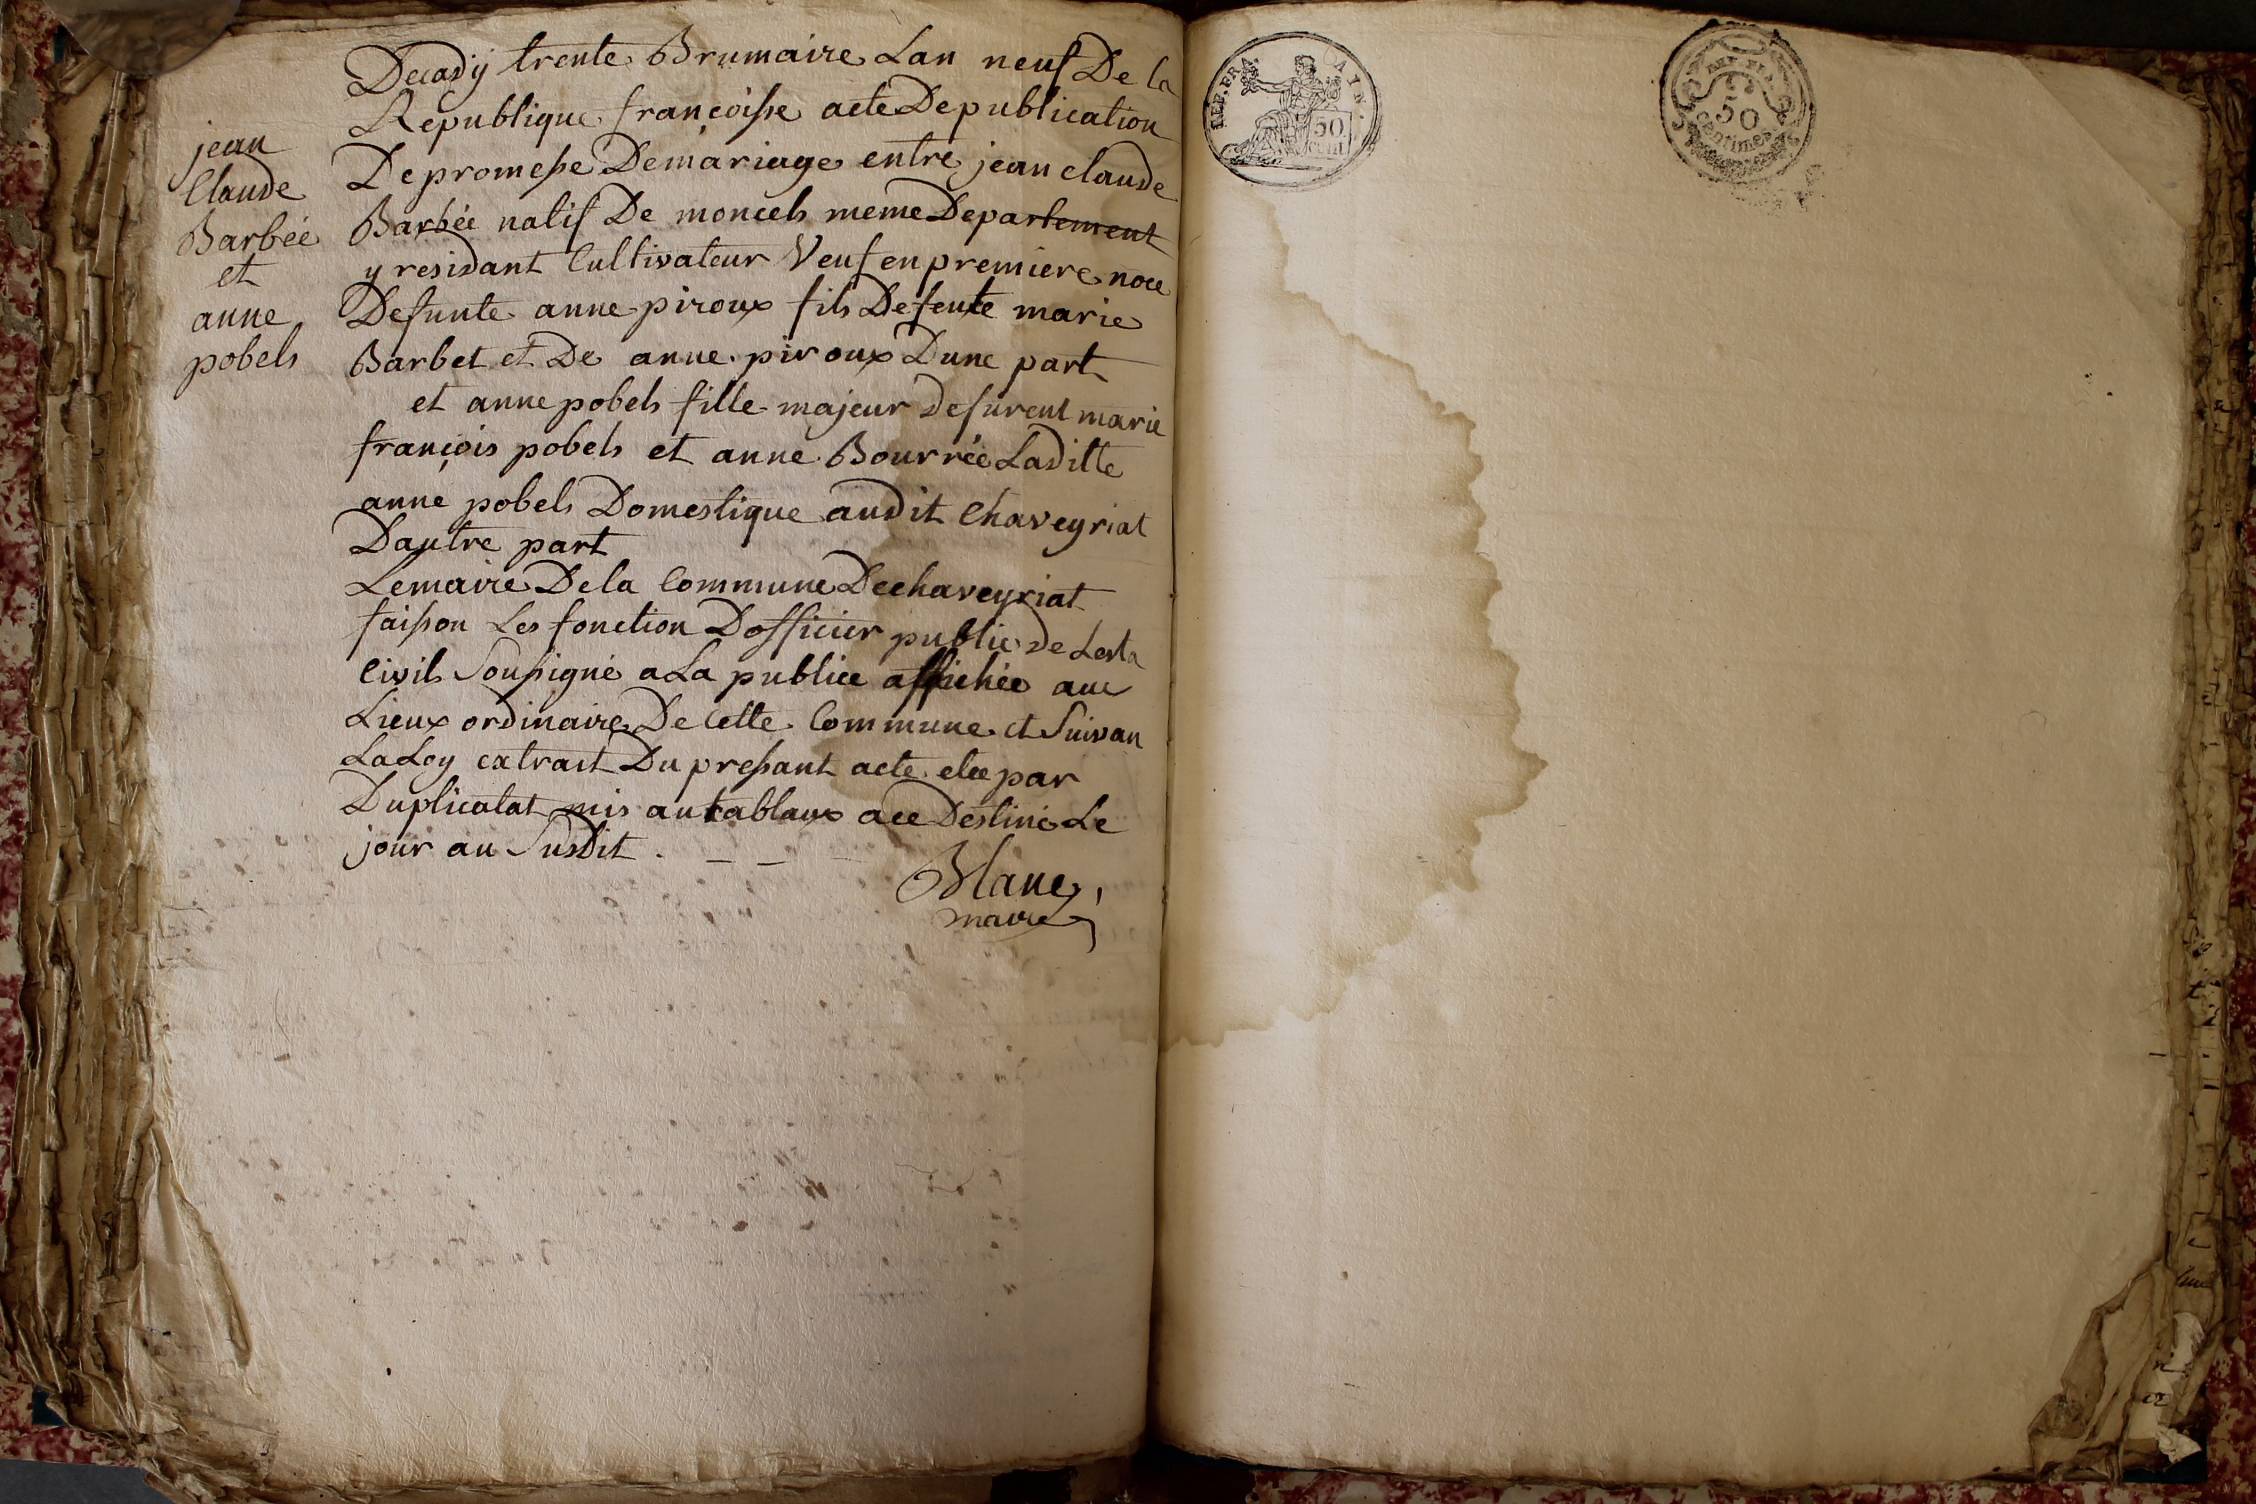 Decady trente Brumaire Lan neuf De la
Republique françoisse acte De publication
De promesse De mariage entre jean claude
Barbéé natif De moncels meme Departement
y residant Cultivateur Veuf en premiere noce
Defunte anne piroux fils De feute marie
Barbet et De anne piroux Dune part
et anne pobels fille majeur defurent marie
françois pobels et anne Bourréé Laditte
anne pobels Domestique audit Chaveyriat
Dautre part
Le maire De la Commune De chaveyriat
faisson Les fonction Dofficier public de Lesta
Civils Soussigné a La publiee affichée aux
Lieux ordinaire De cette Commune et Suivan
La Loy extrait Du pressant acte etee par
Duplicatat mis au tablaux a ce Destiné Le
jour au Susdit.
Blanc
maire
jean
Claude
Barbéé
et
anne
pobels
REP. FRA.
AIN.
50
cent.
REP. FRA.
50
centimes